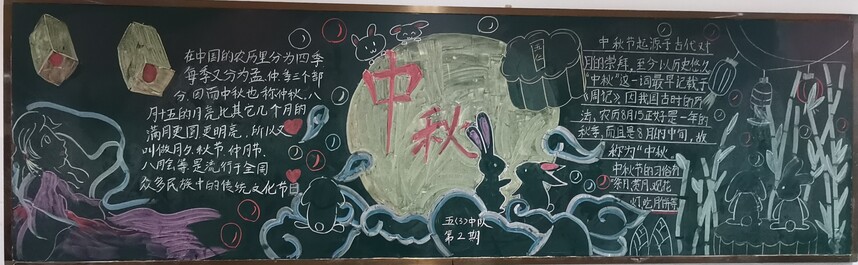 在中国的农历里分为四季
每季又分为孟、仲、季三个部
分,因而中秋也称仲秋。八
月十五的月亮比其它几个月的
满月更圆更明亮,所以又
叫做月夕,秋节 仲月节、
八月会等是流行于全国
众多民族中的传统文化节日
中
秋
五(3)中队
第2期
中秋节起源于古代对
月的崇拜,至今以历史悠久
"中秋"这一词最早记载于
《周记》因我国古时的历
法,农历8月15正好是一年的
秋季,而且是8月的中旬,故
称为"中秋。
中秋节的习俗有
祭月,赏月、观花
灯,吃月饼等